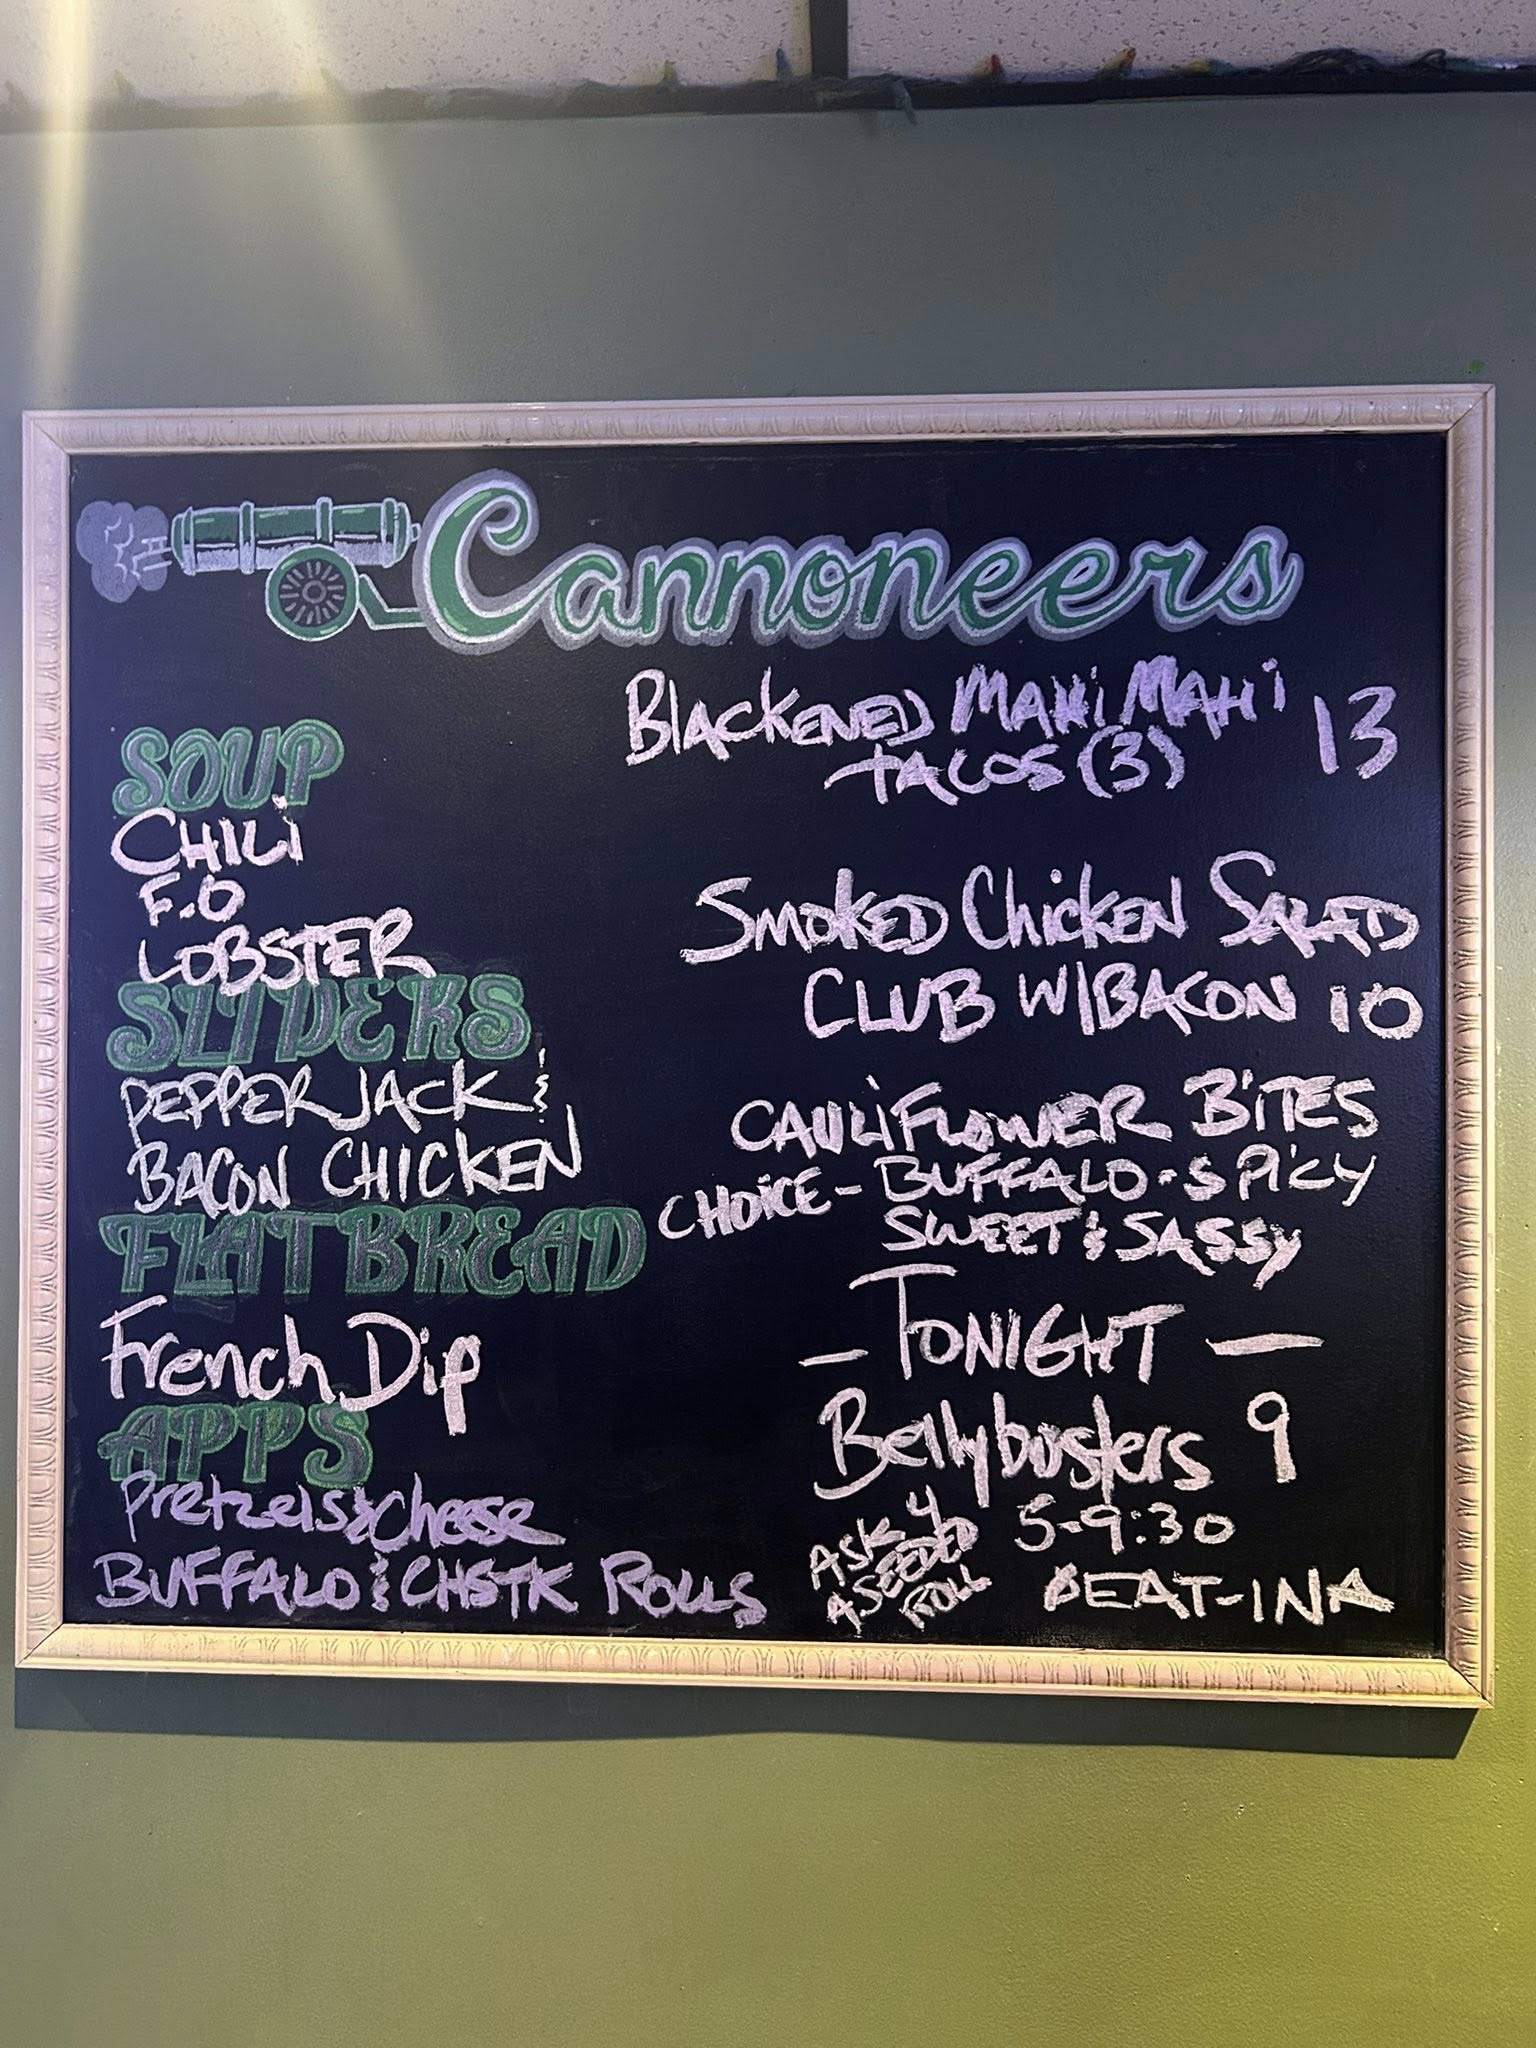 Cannoneers
SOUP
CHILI
F.O
LOBSTER
SLIDERS
PEPPER JACK &
BACON CHICKEN
FLATBREAD
French Dip
APPS
Pretzels & Cheese
BUFFALO & CHSTK ROLLS
BLACKENED MAHI MAHI 13
TACOS (3)
SMOKED CHICKEN SALAD
CLUB W/BACON 10
CAULIFLOWER BITES
CHOICE - BUFFALO - SPICY
SWEET & SASSY
- TONIGHT -
Bellybusters 9
5-9:30
EAT-IN
ASK 4
A SEEDED
ROLL